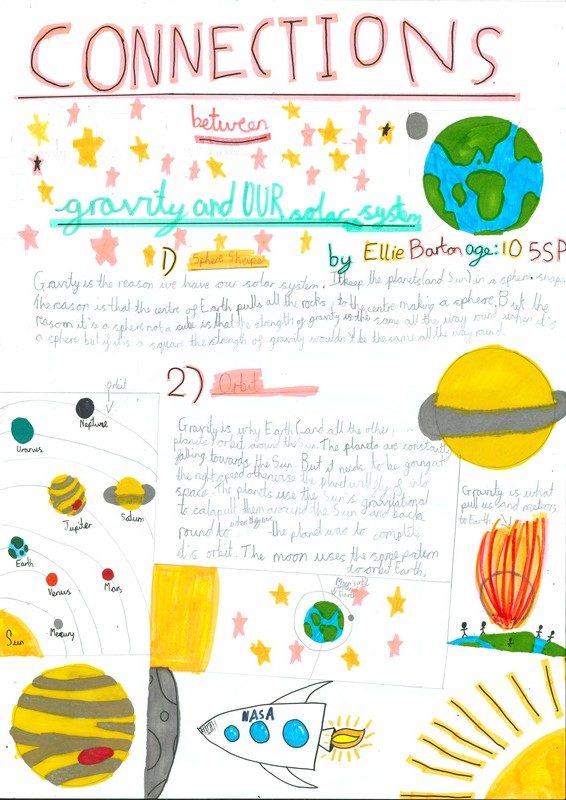 CONNECTIONS
between
gravity and OUR solar system
by Ellie Barton age: 10 5SP
1) Sphere Shape
Gravity is the reason we have our solar system. It keep the planets (and Sun) in a sphere shape.
The reason is that the centre of Earth pulls all the rocks, to the centre making a sphere. But the
reason it's a sphere not a cube is that the strength of gravity is the same all the way round when it's
a sphere but if it is a square the strength of gravity wouldn't be the same all the way round.
2) Orbit
Gravity is why Earth (and all the other
planets) orbit around the Sun. The planets are constantly
falling towards the Sun. But it needs to be going at
the right speed otherwise the planet will fly off into
space. The planets use the Sun's gravitational
to catapult them around the Sun and back
round to the planet was to complete
it's orbit. The moon uses the same pattern
to orbit Earth.
orbit
Neptune
Uranus
Jupiter
Saturn
Earth
Venus
Mars
Mercury
Sun
Gravity is what
pull us and meteors
to Earth
Moon's orbit
Earth
NASA